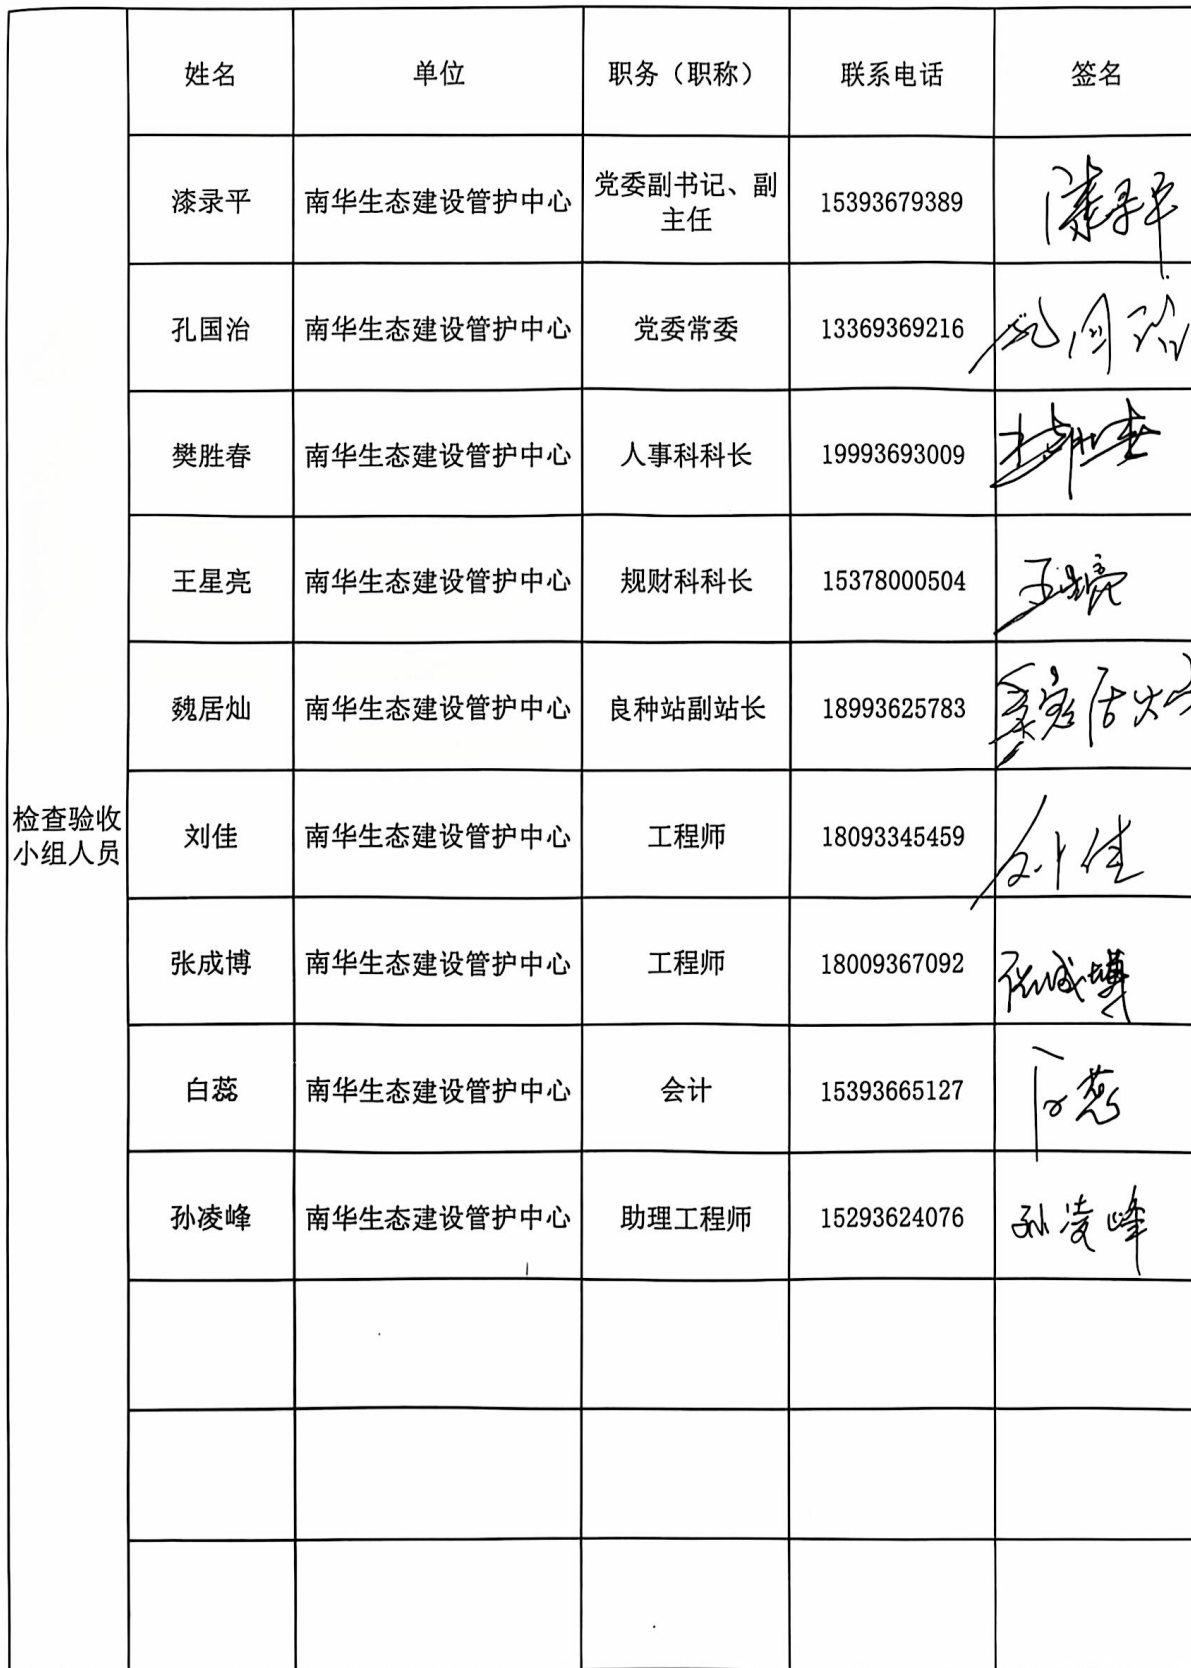 姓名 单位 职务（职称） 联系电话 签名
漆录平 南华生态建设管护中心 党委副书记、副 15393679389 漆录平
主任
孔国治 南华生态建设管护中心 党委常委 13369369216 孔国治
樊胜春 南华生态建设管护中心 人事科科长 19993693009
王星亮 南华生态建设管护中心 规财科科长 15378000504 王星亮
魏居灿 南华生态建设管护中心 良种站副站长 18993625783 魏居灿
检查验收
小组人员
刘佳 南华生态建设管护中心 工程师 18093345459 刘佳
张成博 南华生态建设管护中心 工程师 18009367092 张成博
白蕊 南华生态建设管护中心 会计 15393665127 白蕊
孙凌峰 南华生态建设管护中心 助理工程师 15293624076 孙凌峰